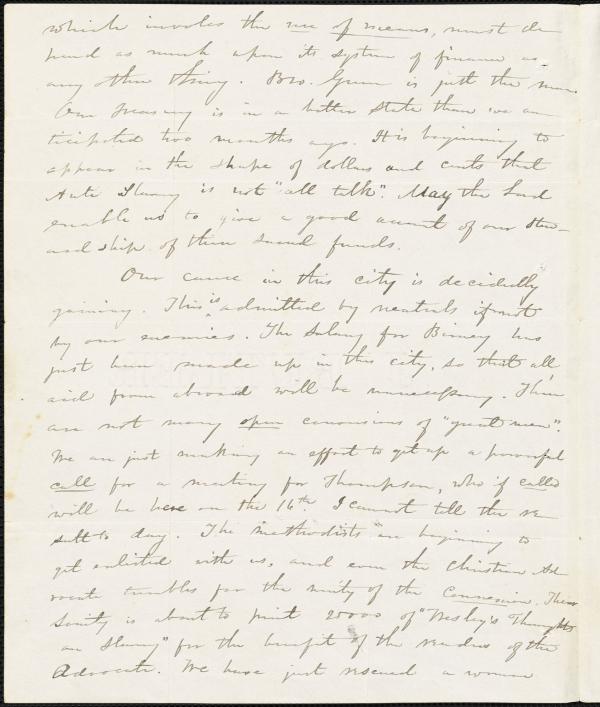 which involves the use of means, must de
pend as much upon its system of finance as
any other thing. Bro. Green is just the man.
Our treasury is in a better state than we an
ticipated two months ago. It is beginning to
appear in the shape of dollars and cents that
Anti Slavery is not "all talk". May the Lord
enable us to give a good account of our stew-
ardship of these sacred funds.
Our cause in this city is decidedly
gaining. This is admitted by neutrals if not
by our enemies. The Salary for Birney has
just been made up in this city, so that all
aid from abroad will be unnecessary. There
are not many open conversions of "great men".
We are just making an effort to get up a powerful
call for a meeting for Thompson, who if called
will be here on the 16th. I cannot tell the re
sult to day. The "methodists" are beginning to
get enlisted with us, and even the Christian Ad
vocate trembles for the unity of the Connexion. Their
Society is about to print 20000 of "Wesley's Thoughts
on Slavery" for the benefit of the readers of the
Advocate. We have just rescued a woman